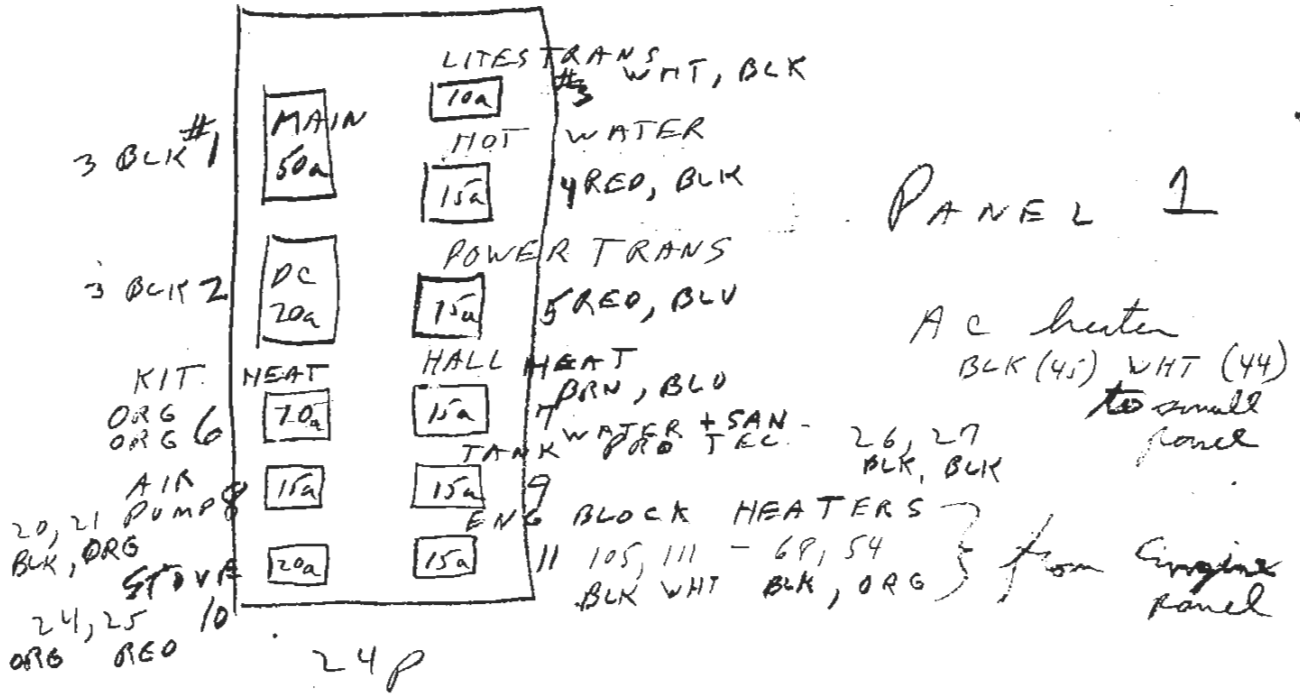 LITES TRANS
10a #3 WHT, BLK
3 BLK #1 MAIN 50a
HOT WATER
15a 4 RED, BLK
PANEL 1
POWER TRANS
3 BLK 2 DC 20a
15a 5 RED, BLU
AC heater
BLK (45) WHT (44)
to small
panel
KIT. HEAT
ORG
ORG 6 20a
HALL HEAT
15a 7 BRN, BLU
WATER + SAN
TANK PRO TEC - 26, 27
BLK, BLK
AIR
PUMP 8 15a
20, 21
BLK, ORG
15a 9
ENG BLOCK HEATERS
15a 11 105, 111 - 68, 54
BLK WHT BLK, ORG
from Engine
panel
STOVE
10 20a
24, 25
ORG RED
24p